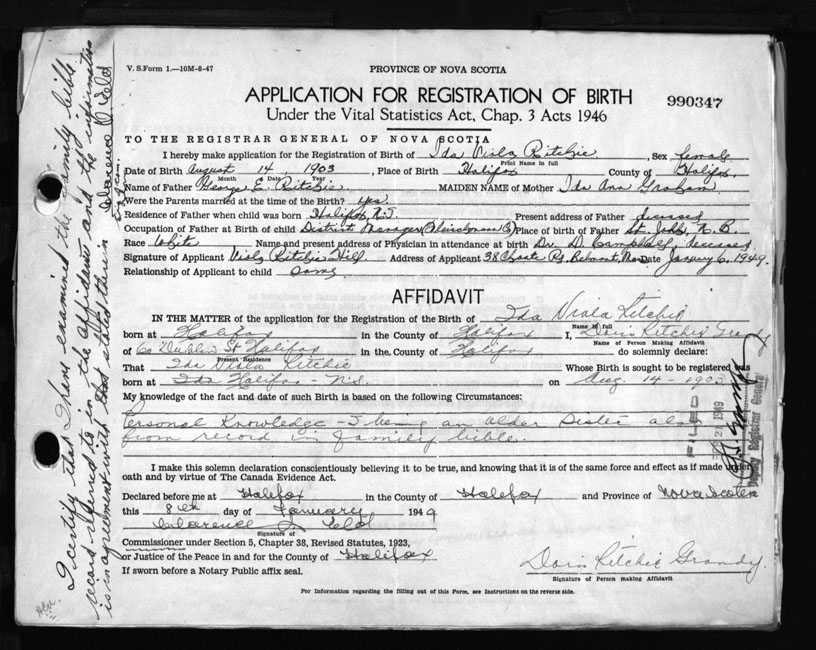 V. S. Form 1.—10M-8-47
PROVINCE OF NOVA SCOTIA
APPLICATION FOR REGISTRATION OF BIRTH
990347
Under the Vital Statistics Act, Chap. 3 Acts 1946
TO THE REGISTRAR GENERAL OF NOVA SCOTIA
I hereby make application for the Registration of Birth of Ida Viola Ritchie, Sex female
Print Name in full
Date of Birth August 14, 1903, Place of Birth Halifax County of Halifax.
Month Date Year
Name of Father George E. Ritchie. MAIDEN NAME of Mother Ida Ann Graham
Were the Parents married at the time of the Birth? yes.
Residence of Father when child was born Halifax, N.S. Present address of Father deceased
Occupation of Father at Birth of child District Manager Place of Birth of Father St. John, N.B.
Race White Name and present address of Physician in attendance at birth Dr. D. Campbell, deceased
Signature of Applicant Viola Ritchie Hill Address of Applicant 38 Choate Rd, Belmont, Mass Date January 6, 1949.
Relationship of Applicant to child same
AFFIDAVIT
IN THE MATTER of the application for the Registration of Birth of Ida Viola Ritchie
Name in full
born at Halifax in the County of Halifax I, Doris Ritchie Grandy
Name of Person Making Affidavit
of 60 Dublin St Halifax in the County of Halifax do solemnly declare:
Present Residence
That Ida Viola Ritchie Whose Birth is sought to be registered was
born at Ida Halifax - N.S. on Aug. 14 - 1903
My knowledge of the fact and date of such Birth is based on the following Circumstances:
Personal Knowledge - I being an older Sister also
from record in family bible.
I make this solemn declaration conscientiously believing it to be true, and knowing that it is of the same force and effect as if made under
oath and by virtue of The Canada Evidence Act.
Declared before me at Halifax in the County of Halifax and Province of Nova Scotia
this 8th day of January 1949
Clarence
Signature of
Commissioner under Section 5, Chapter 38, Revised Statutes, 1923,
or Justice of the Peace in and for the County of Halifax
If sworn before a Notary Public affix seal.
Doris Ritchie Grandy.
Signature of Person Making Affidavit
For Information regarding the filling out of this Form, see Instructions on the reverse side.
I certify that I have examined the family bible
record referred to in the affidavit and the information
is in agreement with that stated therein Clarence
FILED
21 1949
Deputy Registrar General